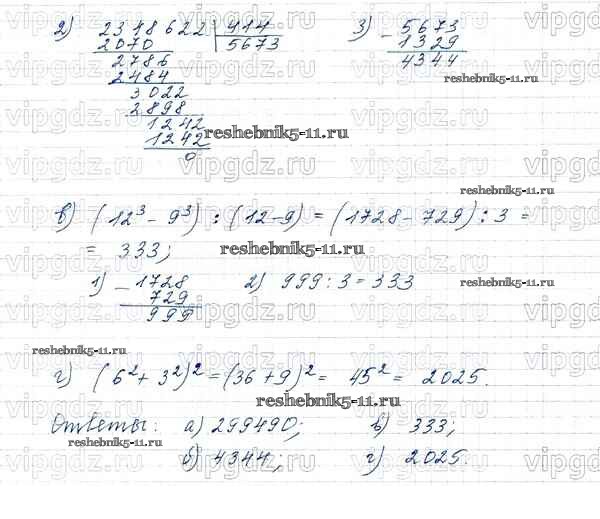 2) 2348622 | 414
2070 5673
2786
2484
3022
2898
1242
1242
0
3) - 5673
1329
4344
reshebnik5-11.ru
reshebnik5-11.ru
reshebnik5-11.ru
в) (12³ - 9³) : (12-9) = (1728 - 729) : 3 =
= 333;
reshebnik5-11.ru
1) - 1728
729
999
2) 999 : 3 = 333
reshebnik5-11.ru
reshebnik5-11.ru
г) (6² + 3²)² = (36 + 9)² = 45² = 2025.
reshebnik5-11.ru
Ответы: а) 299490; в) 333;
reshebnik5-11.ru
б) 4344; г) 2025.
vipgdz.ru